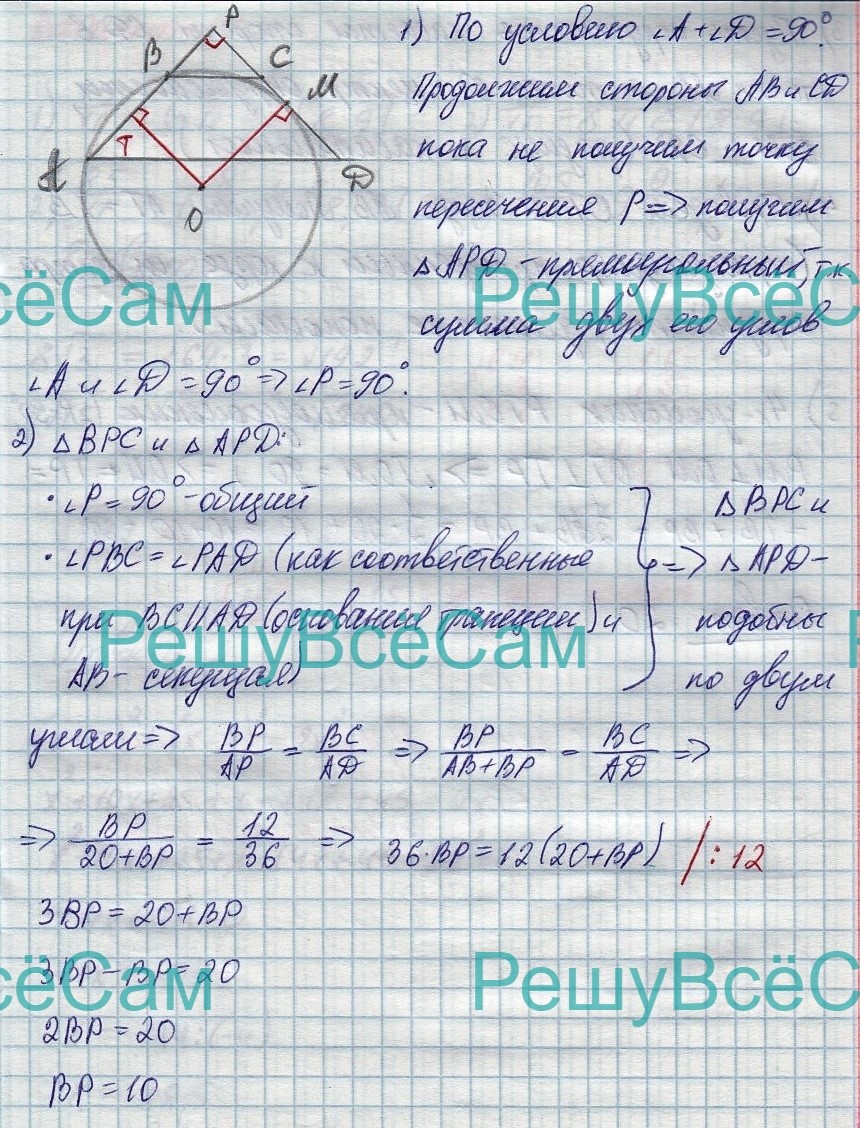 P
B C
M
T
A D
O
1) По условию ∠A+∠D=90°.
Продолжим стороны AB и CD
пока не получим точку
пересечения P => получим
△APD - прямоугольный, т.к.
сумма двух его углов
∠A и ∠D = 90° => ∠P = 90°.
2) △BPC и △APD:
· ∠P = 90° - общий
· ∠PBC = ∠PAD (как соответственные
при BC//AD (основания трапеции) и
AB - секущая)
=> △BPC и
△APD -
подобны
по двум
углам => BP/AP = BC/AD => BP/AB+BP = BC/AD =>
=> BP/20+BP = 12/36 => 36·BP = 12(20+BP) /:12
3BP = 20+BP
3BP - BP = 20
2BP = 20
BP = 10
РешуВсёСам
РешуВсёСам
РешуВсёСам